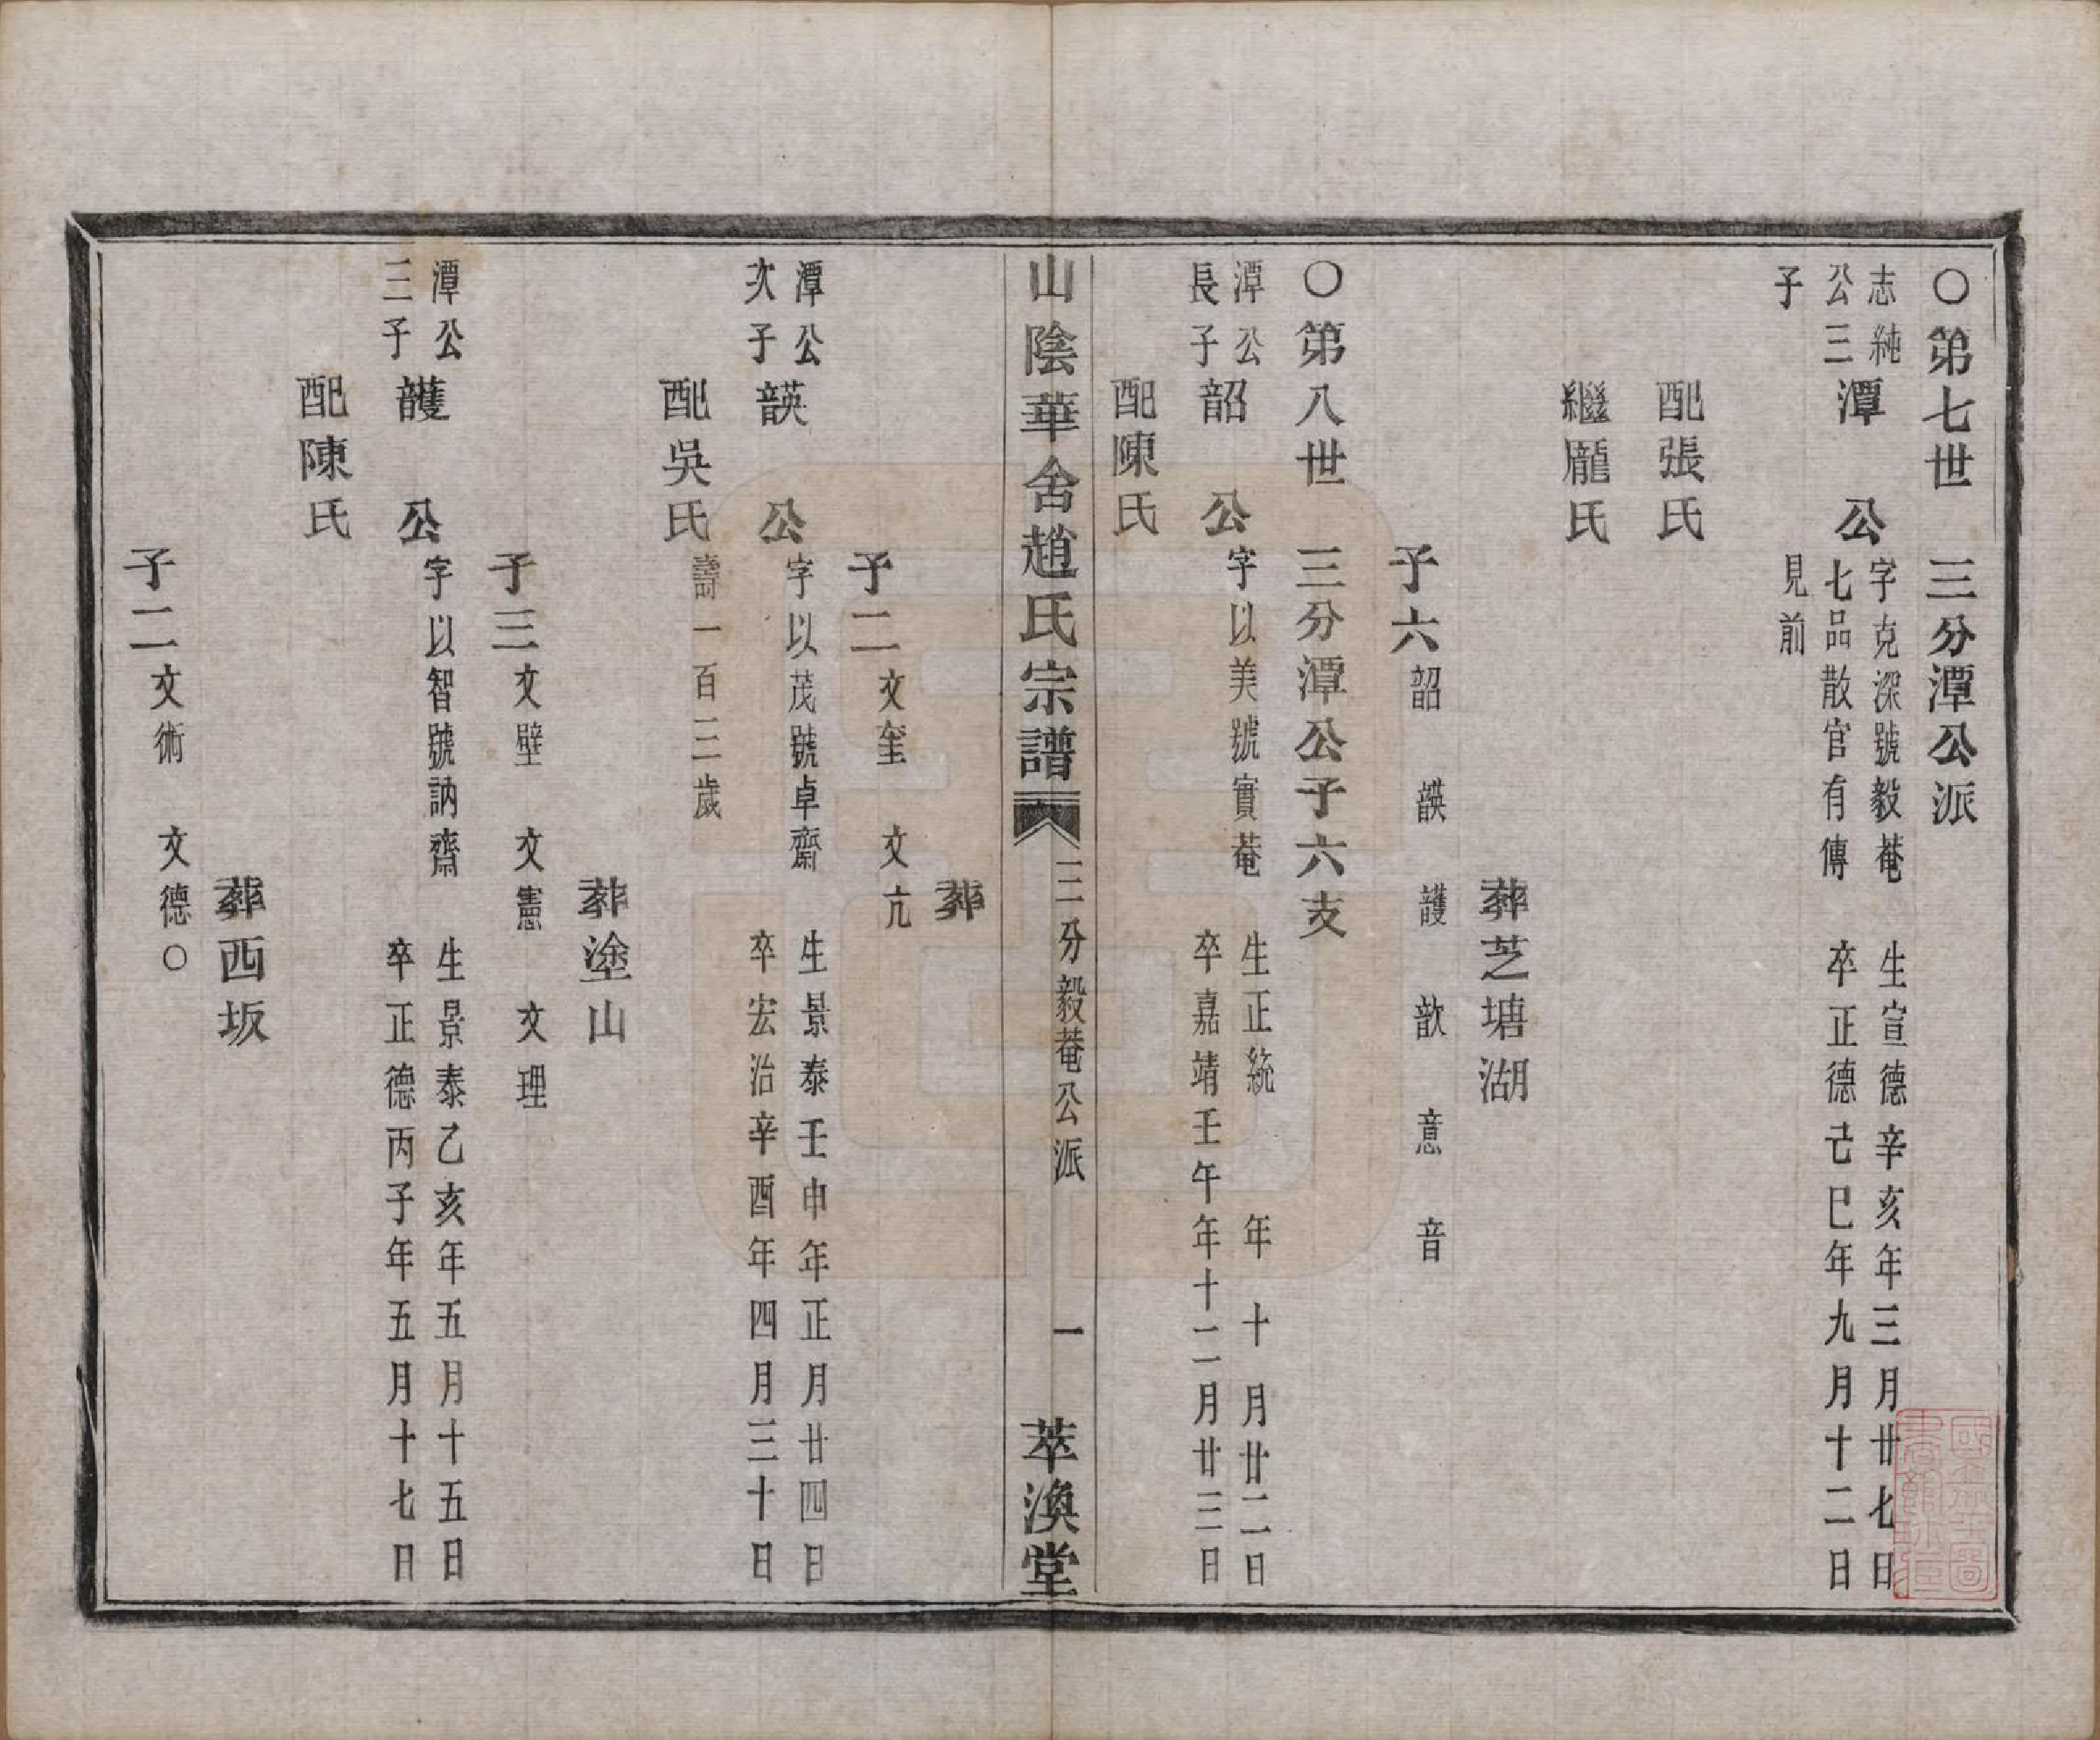 ○第七世　三分潭公派
志純公三子　潭　公　字克深號毅菴七品散官有傳見前　生宣德辛亥年三月廿七日卒正德己巳年九月十二日
配張氏
繼龎氏
葬芝塘湖
子六　韶　韺　頀　歆　意　音
○第八世　三分潭公子六支
潭公長子　韶　公　字以美號實菴　生正統　年　十月廿二日卒嘉靖壬午年十二月廿三日
配陳氏
山陰華舍趙氏宗譜　三分毅菴公派　一　萃渙堂
葬
子二　文奎　文亢
潭公次子　韺　公　字以茂號卓齋　生景泰壬申年正月廿四日卒宏治辛酉年四月三十日
配吳氏　壽一百三歲
葬塗山
子三　文壁　文憲　文理
潭公三子　頀　公　字以智號訥齋　生景泰乙亥年五月十五日卒正德丙子年五月十七日
配陳氏
葬西坂
子二　文術　文德○